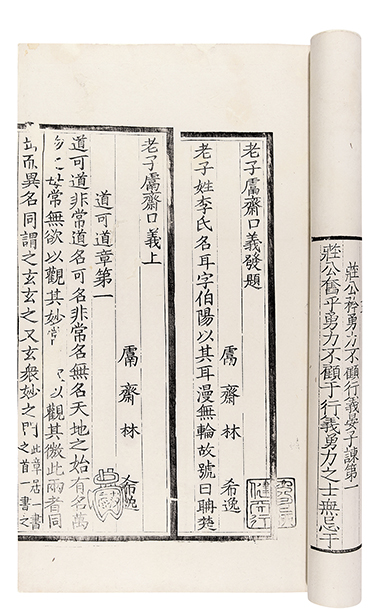 莊公矜勇力不顧行義晏子諫第一
莊公奮乎勇力不顧于行義勇力之士無忌于
老子鬳齋口義發題
鬳齋林 希逸
老子姓李氏名耳字伯陽以其耳漫無輪故號曰聃楚
老子鬳齋口義上
鬳齋林 希逸
道可道章第一
道可道非常道名可名非常名無名天地之始有名萬
常無欲以觀其妙常 以觀其徼此兩者同
而異名同謂之玄玄之又玄衆妙之門
此章居一書
之首一書之